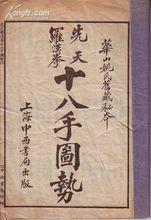 華山姚氏舊藏秘本
先天
羅漢拳
十八手圖勢
上海中西書局出版